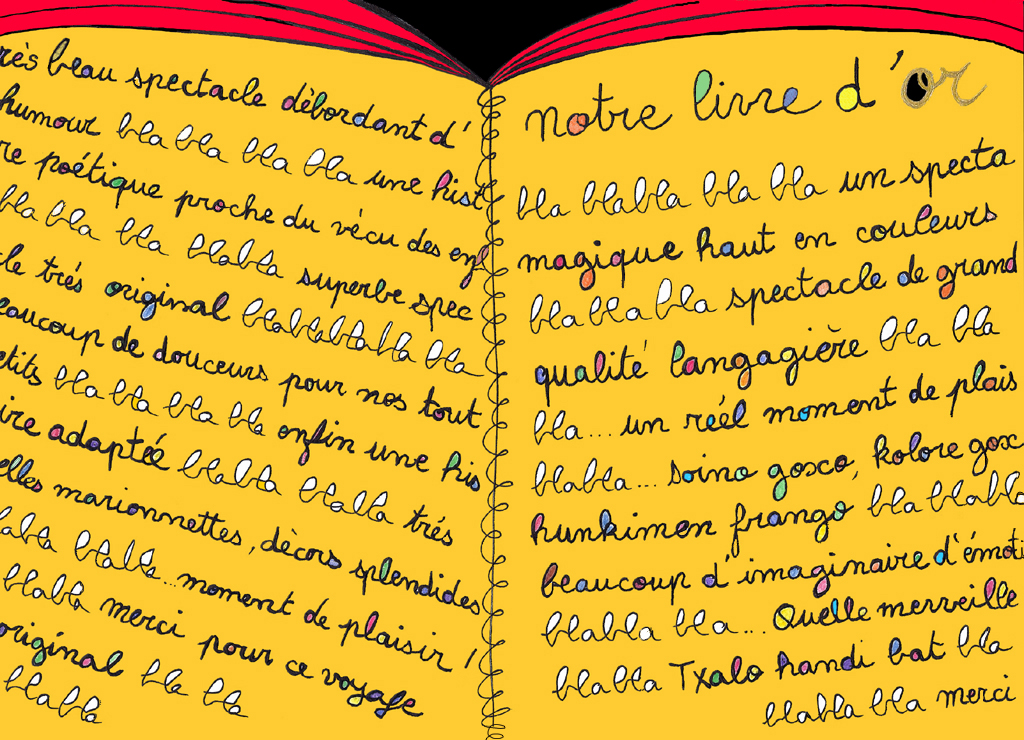 rès beau spectacle débordant d'
humour bla bla bla bla une hist
re poétique proche du vécu des enf
bla bla bla blabla superbe spec
cle trés original blablablabla bla
eaucoup de douceurs pour nos tout
etits bla bla bla bla enfin une his
ire adaptée blabla blabla trés
elles marionnettes, dècors splendides
labla blabla... moment de plaisir !
blabla merci pour ce voyage
original bla bla
blabla
notre livre d'or
bla blabla bla bla un specta
magique haut en couleurs
blablabla bla spectacle de grand
qualité langagière bla bla
bla... un réel moment de plais
blabla... soino goxo, kolore gox
hunkimen frango blablabla
beaucoup d'imaginaire d'émoti
blabla bla... Quelle merveille
blabla Txalo handi bat bla
blabla bla merci